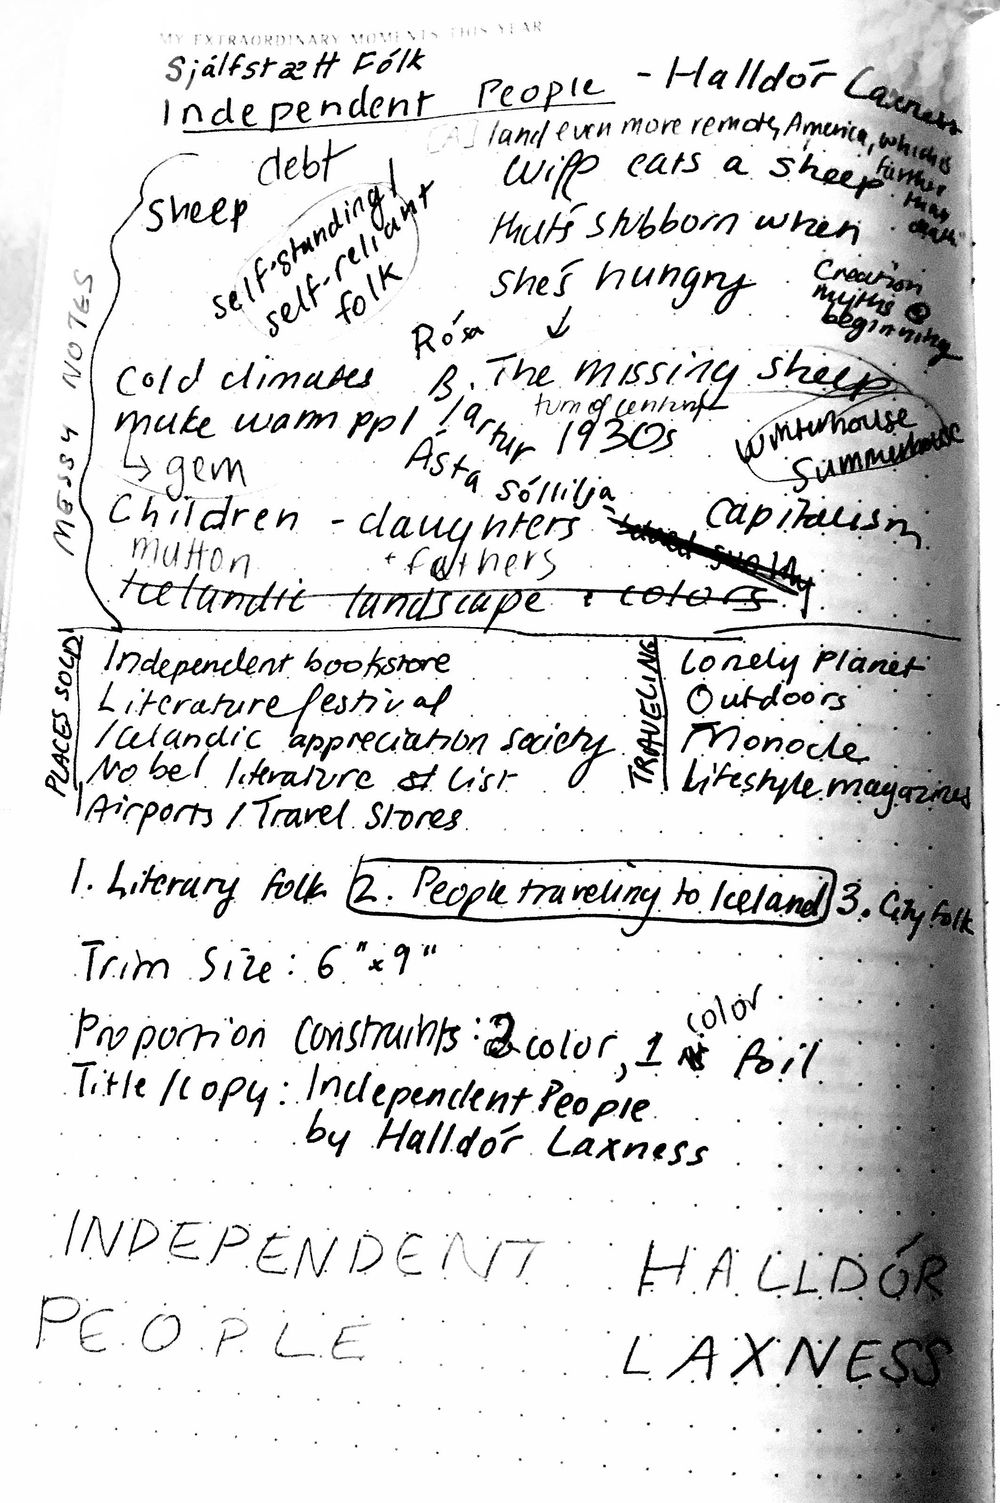 MY EXTRAORDINARY MOMENTS THIS YEAR
Sjálfstætt Fólk
Independent People - Halldór Laxness
[A] land even more remote, America, which is
further
than
death
MESSY NOTES
debt
sheep
self-standing/
self-reliant
folk
Wife eats a sheep
that's stubborn when
she's hungry
Creation
myths @
beginning
The missing sheep
turn of century
1930s
Winterhouse
Summerhouse
Rósa
B.
Iartur
Ásta
Sóllilja
Cold climates
make warm ppl
↳ gem
Children - daughters
+ fathers
mutton
Capitalism
Icelandic landscape + colors
PLACES SOLD
Independent bookstore
Literature festival
Icelandic appreciation society
Nobel literature list
Airports / Travel Stores
TRAVELING
Lonely Planet
Outdoors
Monocle
Lifestyle magazines
1. Literary folk 2. People traveling to Iceland 3. City folk
Trim Size: 6"x9"
Proportion constraints: 2 color, 1 color foil
Title/copy: Independent People
by Halldór Laxness
INDEPENDENT
PEOPLE
HALLDÓR
LAXNESS